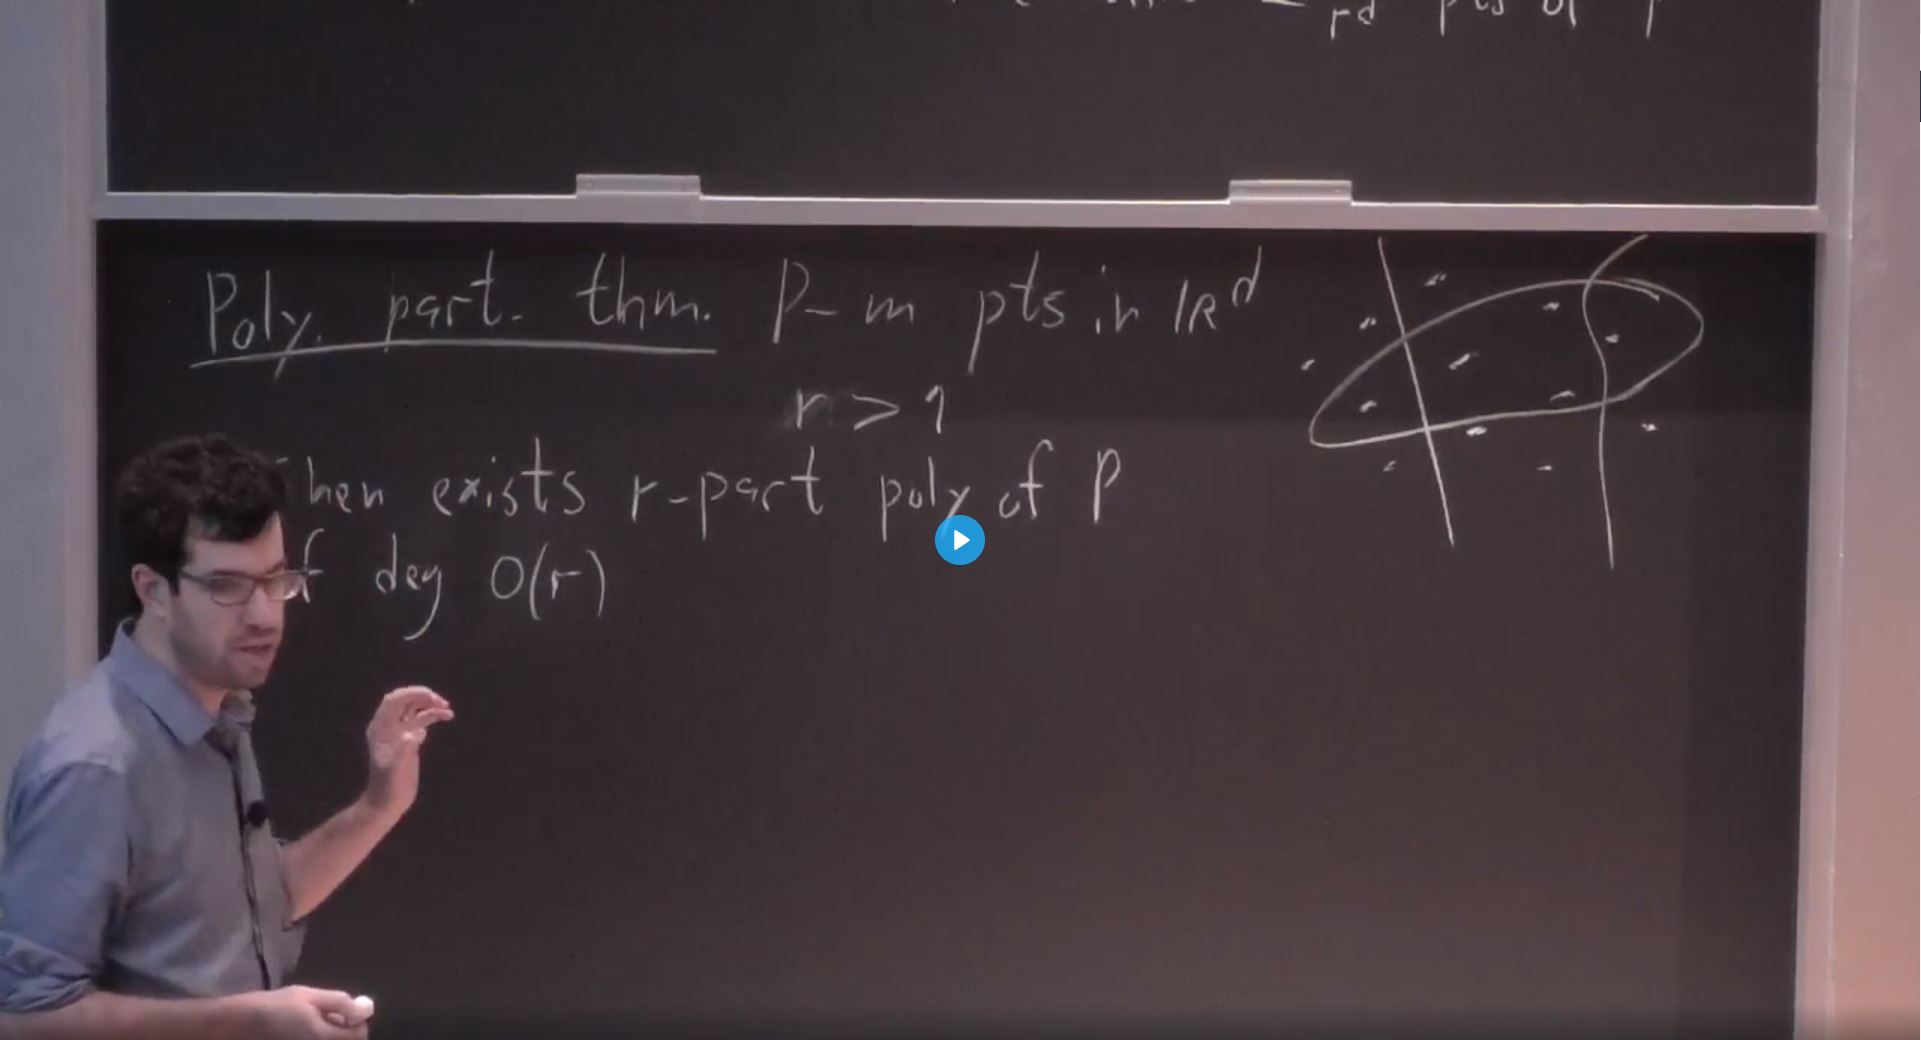 rd pts of P
Poly. part. thm. P - m pts in ℝ^d
r > 1
Then exists r-part poly of P
of deg O(r)